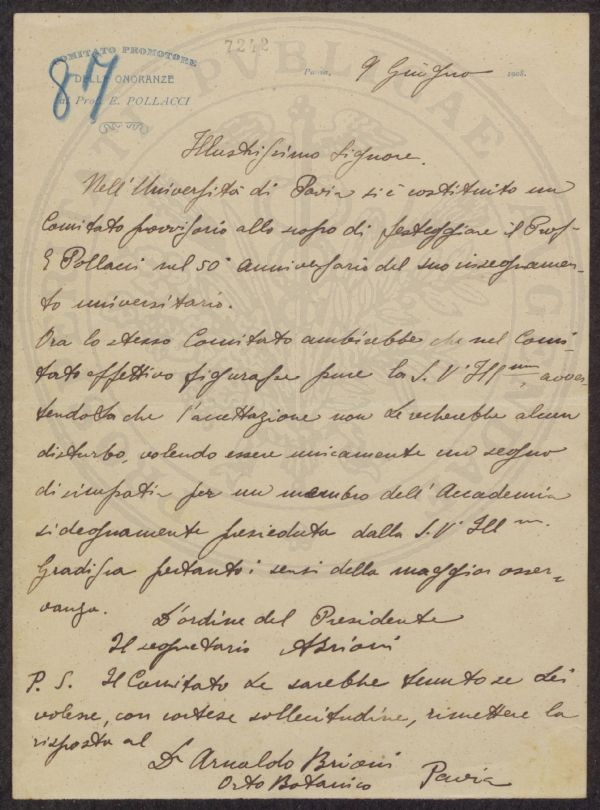 7242
COMITATO PROMOTORE
DELLE ONORANZE
al Prof. E. POLLACCI
87
Pavia, 9 Giugno 1908.
Illustrissimo Signore.
Nell'Università di Pavia si è costituito un
Comitato provvisorio allo scopo di festeggiare il Prof.
E Pollacci nel 50° anniversario del suo insegnamen-
to universitario.
Ora lo stesso Comitato ambirebbe che nel Comi-
tato effettivo figurasse pure la S. V. Ill.ma, avver-
tendola che l'accettazione non Le recherebbe alcun
disturbo, volendo essere unicamente un segno
di simpatia per un membro dell'Accademia
sì degnamente presieduta dalla S. V. Ill.ma.
Gradisca pertanto i sensi della maggior osser-
vanza.
D'ordine del Presidente
Il segretario ABrioni
P. S. Il Comitato Le sarebbe tenuto se Lei
volesse, con cortese sollecitudine, rimettere la
risposta al
Dr Arnaldo Brioni
Orto Botanico Pavia